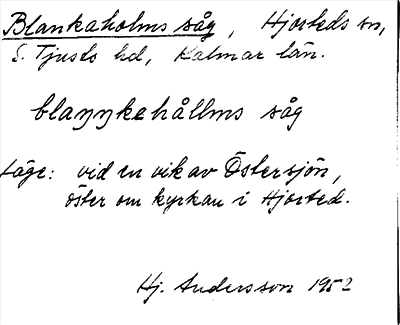 Blankaholms såg, Hjorteds sn,
S. Tjusts hd, Kalmar län.
blaŋŋkehållms såg
Läge: vid en vik av Östersjön,
öster om kyrkan i Hjorted.
Hj. Andersson 1952